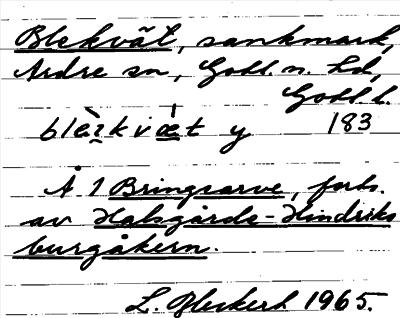 Blekvät, sankmark,
Ardre sn, Gotl. n. hd,
Gotl. l.
183
Å 1 Bringsarve, forts.
av Halsgårda-Hindriks
burgåkern.
1965.